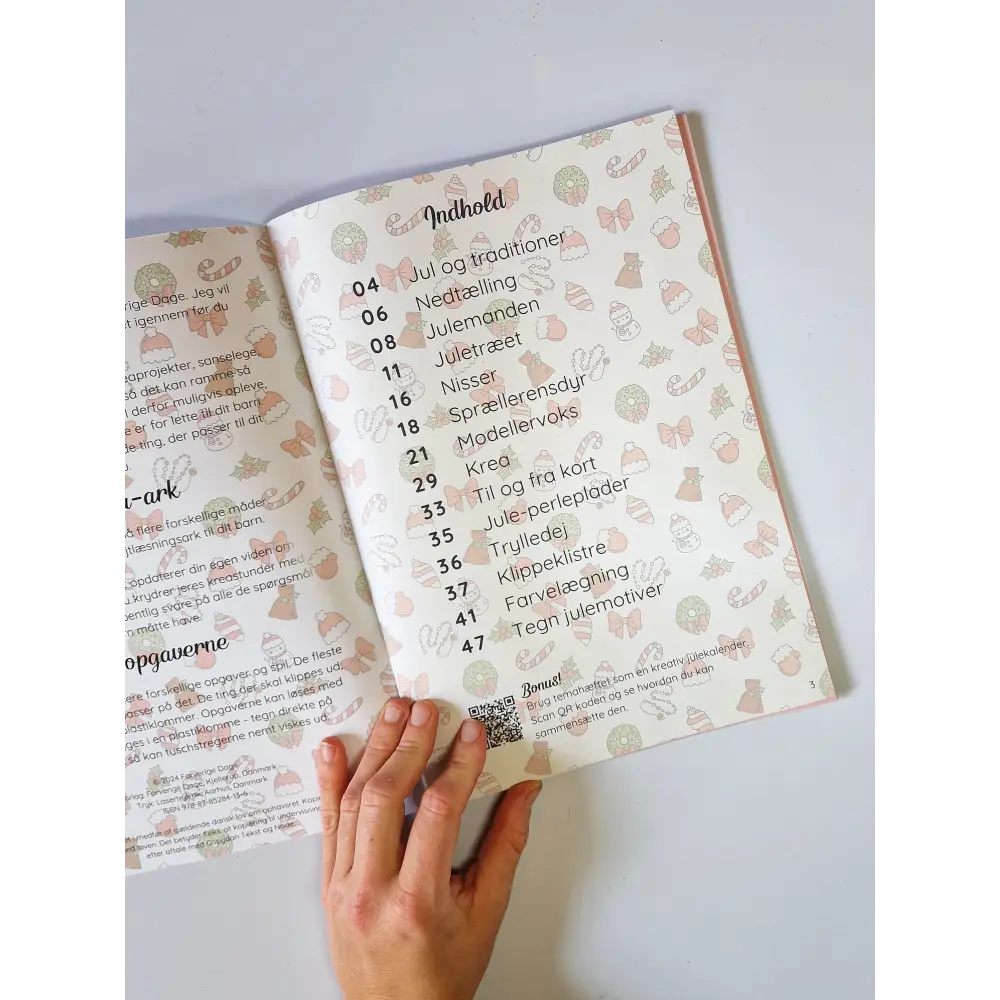 rige Dage. Jeg vil
t igennem før du
eaprojekter, sanselege,
så det kan ramme så
l derfor muligvis opleve,
e er for lette til dit barn.
de ting, der passer til dit
-ark
å flere forskellige måder
jtlæsningsark til dit barn.
opdaterer din egen viden om
krydrer jeres kreastunder med
entlig svare på alle de spørgsmål
n måtte have.
opgaverne
ere forskellige opgaver og spil. De fleste
asser på det. De ting der skal klippes ud,
lastiklommer. Opgaverne kan løses med
ges i en plastiklomme - tegn direkte på
så kan tuschstregerne nemt viskes ud.
© 2024 Farverige Dage
Farverige Dage, Kjellerup, Danmark
Tryk: Lasertryk.dk, Aarhus, Danmark
ISBN 978-87-85284-13-6
t i medfør af gældende dansk lov om ophavsret. Kopi
ed loven. Det betyder f.eks. at kopiering til undervisning
efter aftale med Copydan Tekst og Node.
Indhold
04 Jul og traditioner
06 Nedtælling
08 Julemanden
11 Juletræet
16 Nisser
18 Sprællerensdyr
21 Modellervoks
29 Krea
33 Til og fra kort
35 Jule-perleplader
36 Trylledej
37 Klippeklistre
41 Farvelægning
47 Tegn julemotiver
Bonus!
Brug temahæftet som en kreativ julekalender.
Scan QR koden og se hvordan du kan
sammensætte den.
3